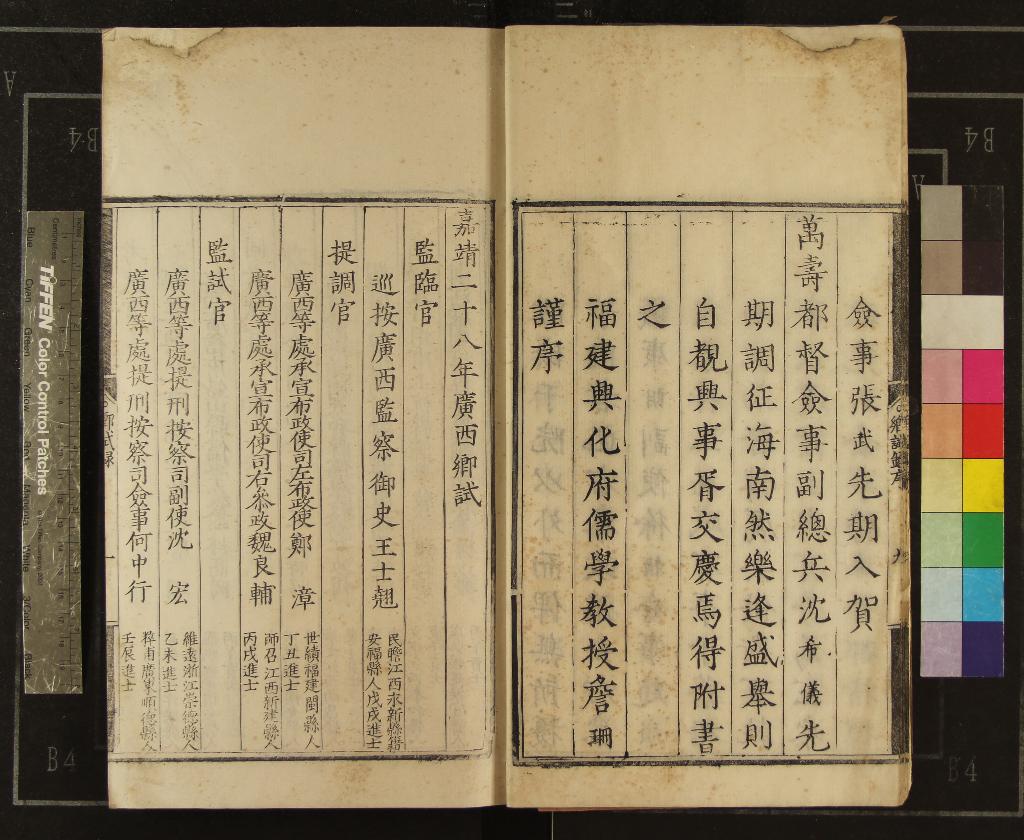 僉事張武先期入賀
萬壽都督僉事副總兵沈希儀先
期調征海南然樂逢盛舉則
自覩興事胥交慶焉得附書
之
福建興化府儒學教授詹珊
謹序
嘉靖二十八年廣西鄉試
監臨官
巡按廣西監察御史王士翹
民瞻江西永新縣籍
安福縣人戊戌進士
提調官
廣西等處承宣布政使司左布政使鄭漳
世績福建閩縣人
丁丑進士
廣西等處承宣布政使司右叅政魏良輔
師召江西新建縣人
丙戌進士
監試官
廣西等處提刑按察司副使沈宏
維遠浙江崇德縣人
乙未進士
廣西等處提刑按察司僉事何中行
粹甫廣東順德縣人
壬辰進士
鄉試錄
一
TIFFEN Color Control Patches
B4
B4
B4
B4
A
A